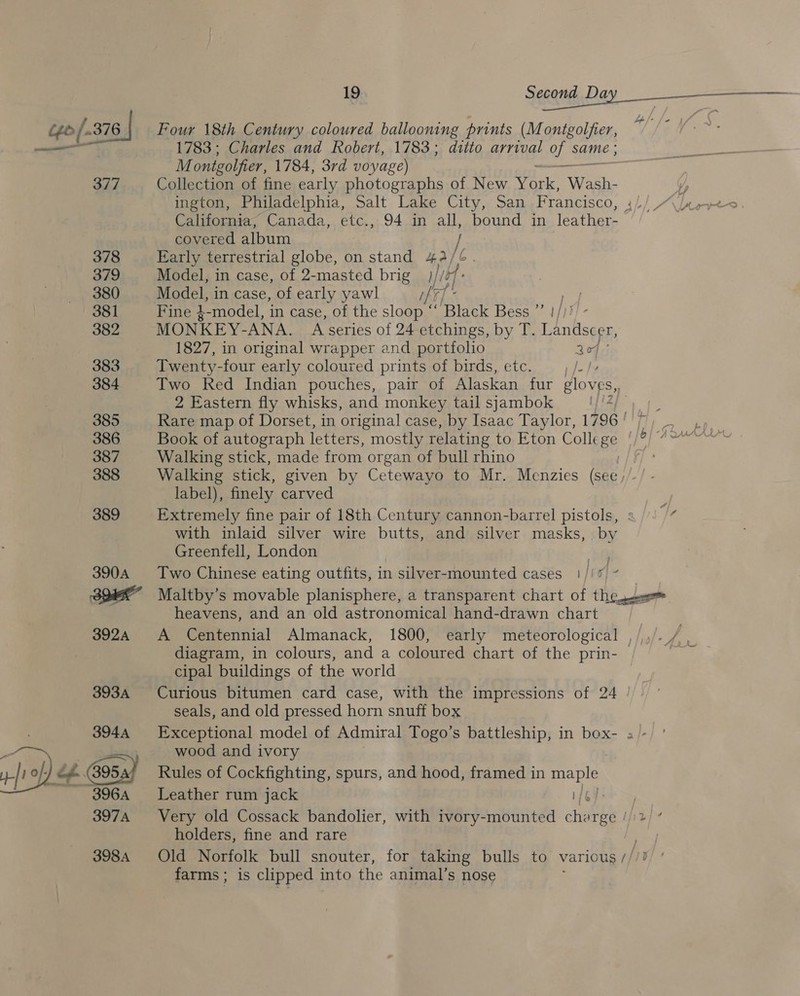 19 Second Day
376 Four 18th Century coloured ballooning prints (Montgolfier,
1783; Charles and Robert, 1783; ditto arrival of same;
Montgolfier, 1784, 3rd voyage)
377 Collection of fine early photographs of New York, Wash-
ington, Philadelphia, Salt Lake City, San Francisco,
California, Canada, etc., 94 in all, bound in leather-
covered album
378 Early terrestrial globe, on stand 42/6
379 Model, in case, of 2-masted brig
380 Model, in case, of early yawl
381 Fine ½-model, in case, of the sloop “Black Bess”
382 MONKEY-ANA. A series of 24 etchings, by T. Landscer,
1827, in original wrapper and portfolio
383 Twenty-four early coloured prints of birds, etc.
384 Two Red Indian pouches, pair of Alaskan fur gloves,
2 Eastern fly whisks, and monkey tail sjambok
385 Rare map of Dorset, in original case, by Isaac Taylor, 1796
386 Book of autograph letters, mostly relating to Eton College
387 Walking stick, made from organ of bull rhino
388 Walking stick, given by Cetewayo to Mr. Menzies (see
label), finely carved
389 Extremely fine pair of 18th Century cannon-barrel pistols,
with inlaid silver wire butts, and silver masks, by
Greenfell, London
390A Two Chinese eating outfits, in silver-mounted cases
Maltby’s movable planisphere, a transparent chart of the
heavens, and an old astronomical hand-drawn chart
392A A Centennial Almanack, 1800, early meteorological
diagram, in colours, and a coloured chart of the prin-
cipal buildings of the world
393A Curious bitumen card case, with the impressions of 24
seals, and old pressed horn snuff box
394A Exceptional model of Admiral Togo’s battleship, in box-
wood and ivory
395A Rules of Cockfighting, spurs, and hood, framed in maple
396A Leather rum jack
397A Very old Cossack bandolier, with ivory-mounted charge
holders, fine and rare
398A Old Norfolk bull snouter, for taking bulls to various
farms; is clipped into the animal’s nose